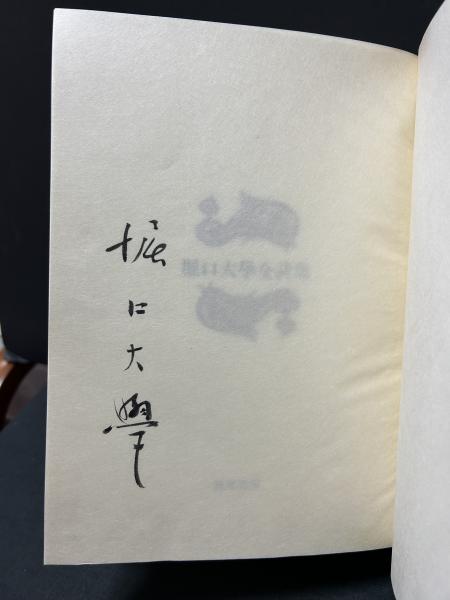 堀口大學
堀口大學全詩集